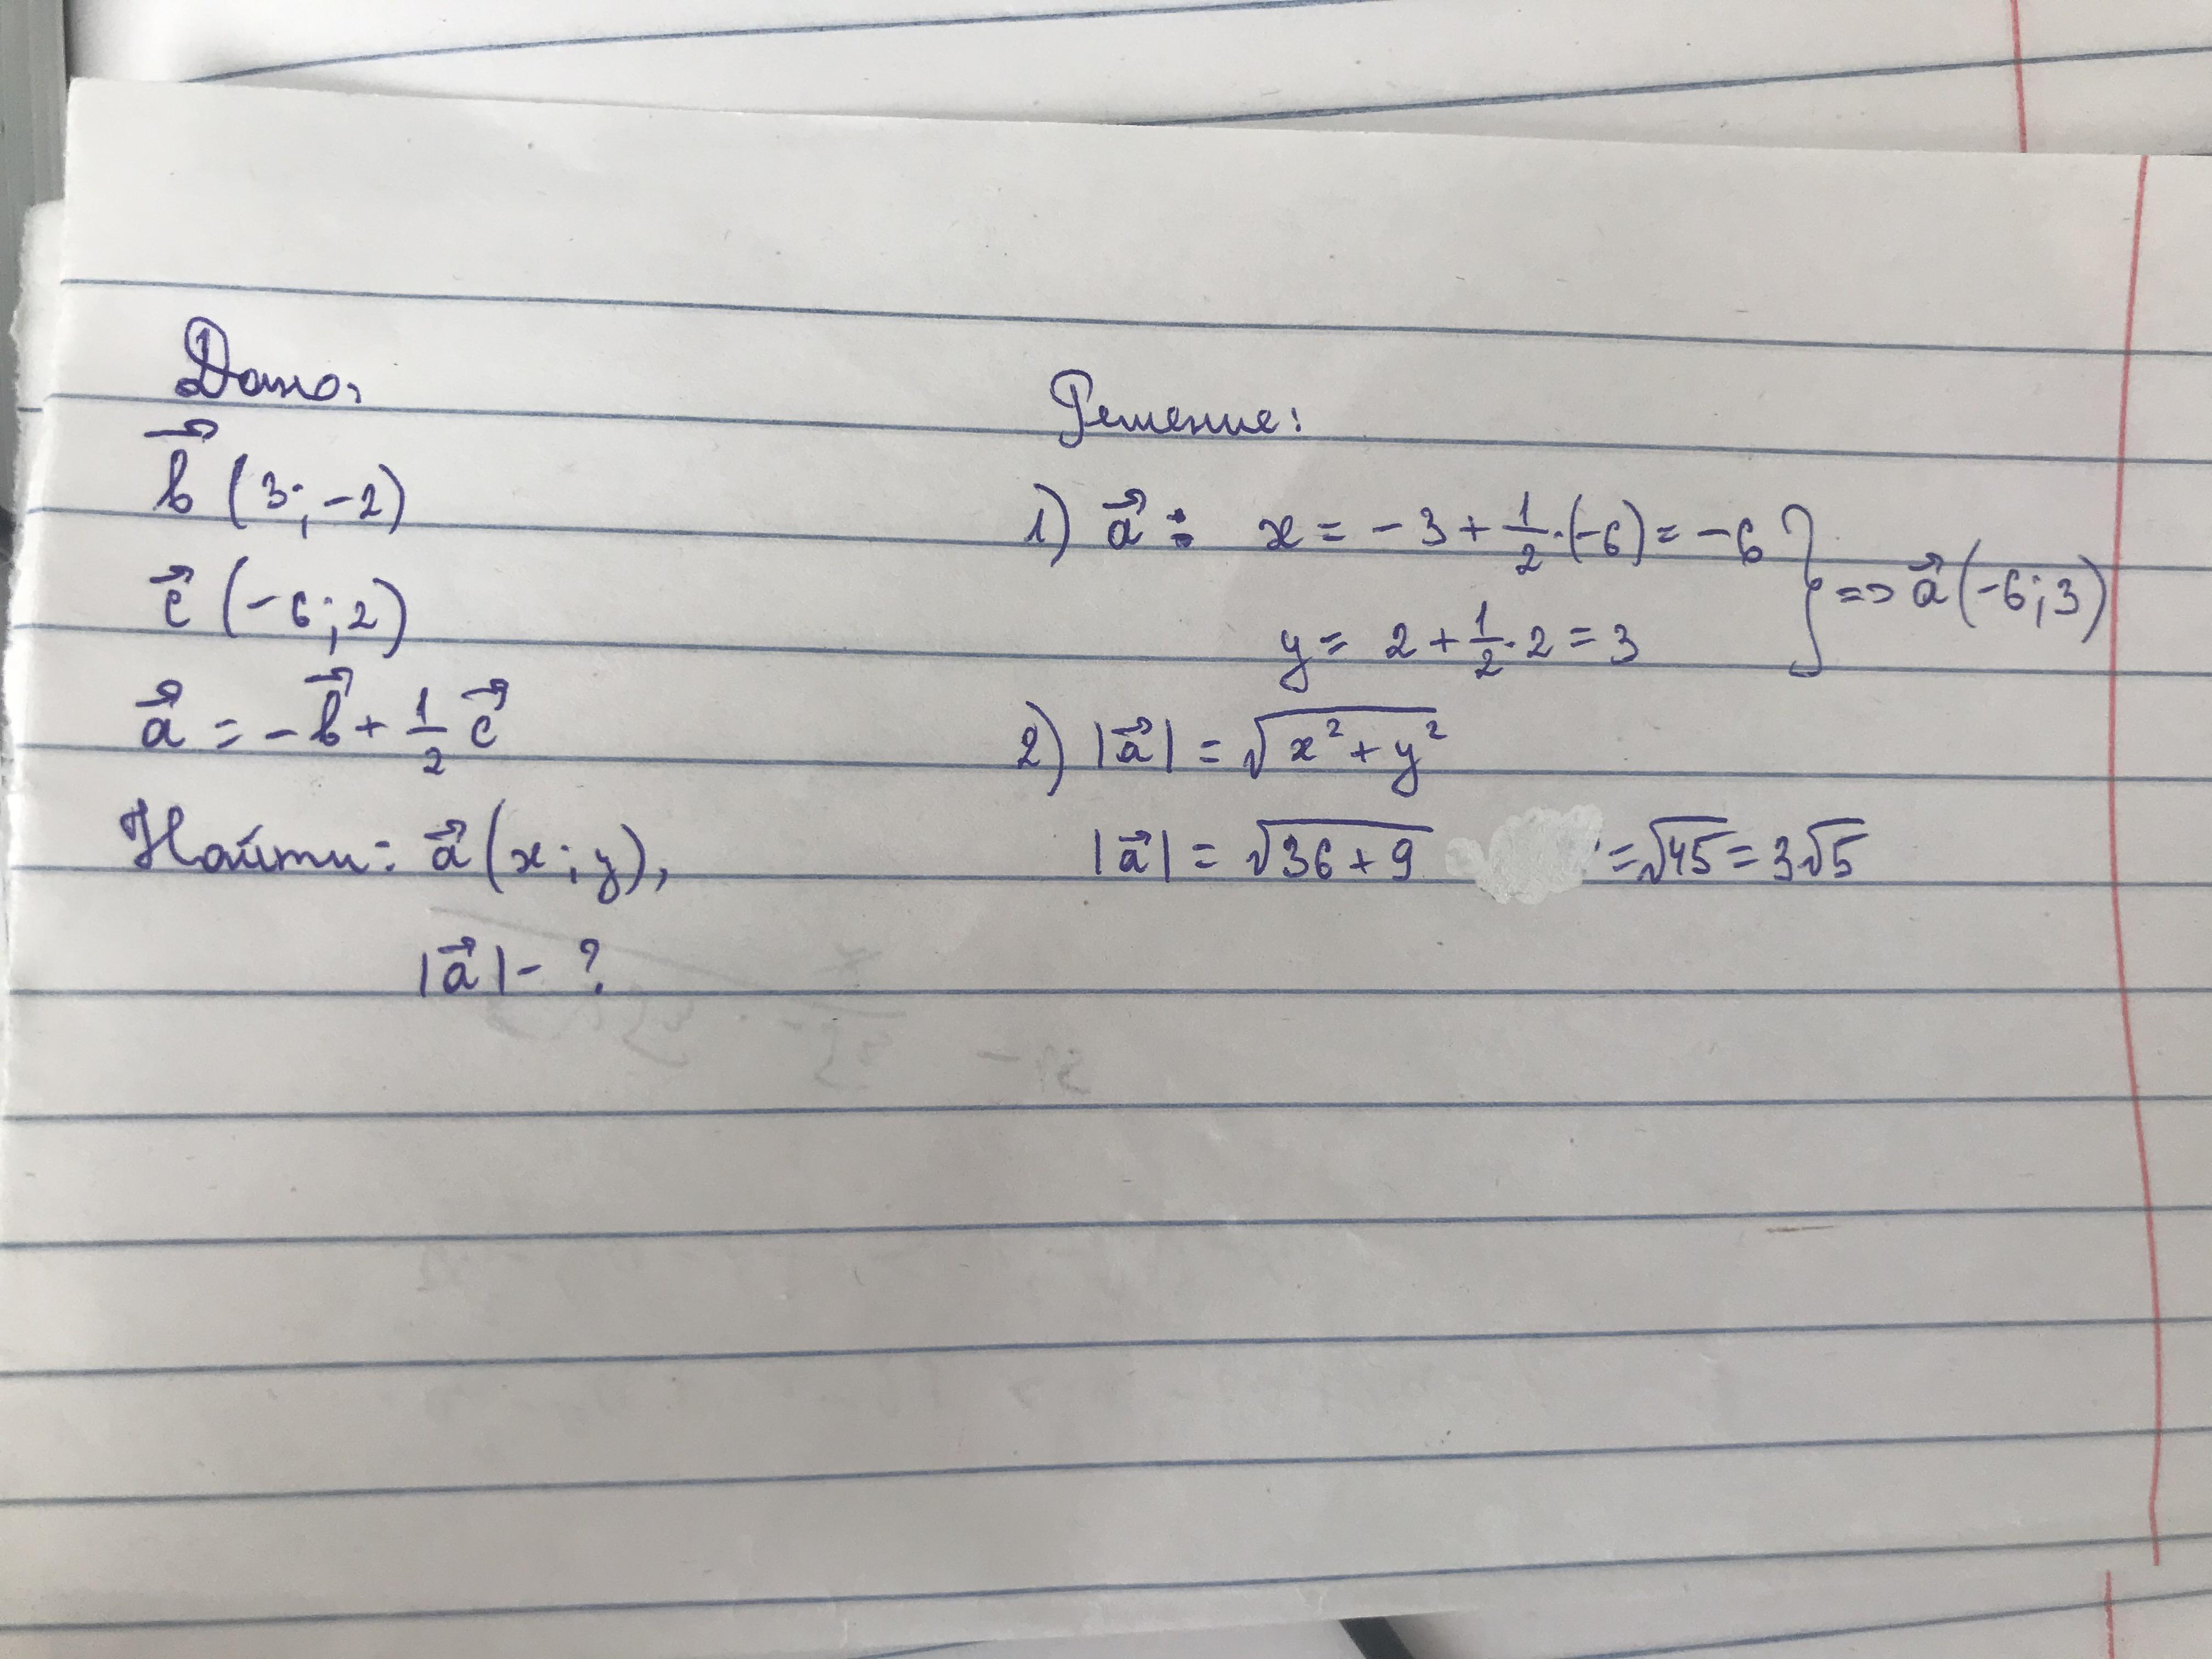 Дано:
b⃗ (3; -2)
c⃗ (-6; 2)
a⃗ = -b⃗ + 1/2 c⃗
Найти: a⃗ (x; y),
|a⃗| - ?
Решение:
1) a⃗ : x = -3 + 1/2 · (-6) = -6 } => a⃗ (-6; 3)
y = 2 + 1/2 · 2 = 3
2) |a⃗| = √(x² + y²)
|a⃗| = √(36 + 9) = √45 = 3√5